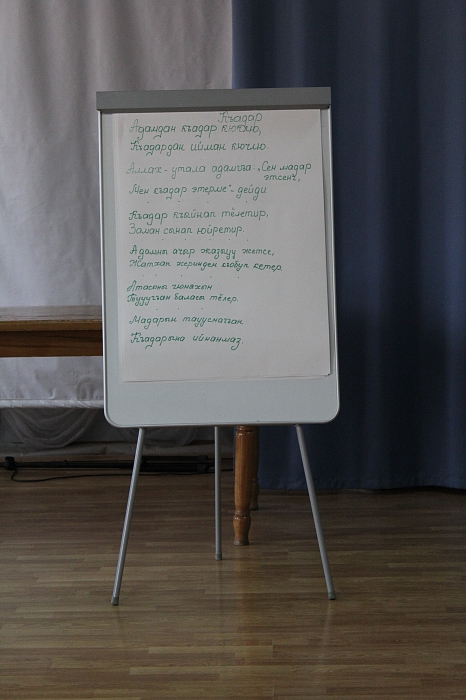 Къадар
Адамдан къадар кючлю,
Къадардан ийман кючлю.
Аллах-утала адамгъа: „Сен мадар
этсенг,
Мен къадар этерме"- дейди
Къадар къыйнап тёлетир,
Заман сынап юйретир.
Адамны ачыр жазыуу жетсе,
Жатхан жеринден къобуп кетер
Атасыны гюнахын
Туууучган баласы тёлер.
Мадарын тауусмагъан
Къадарына ийнанмаз.